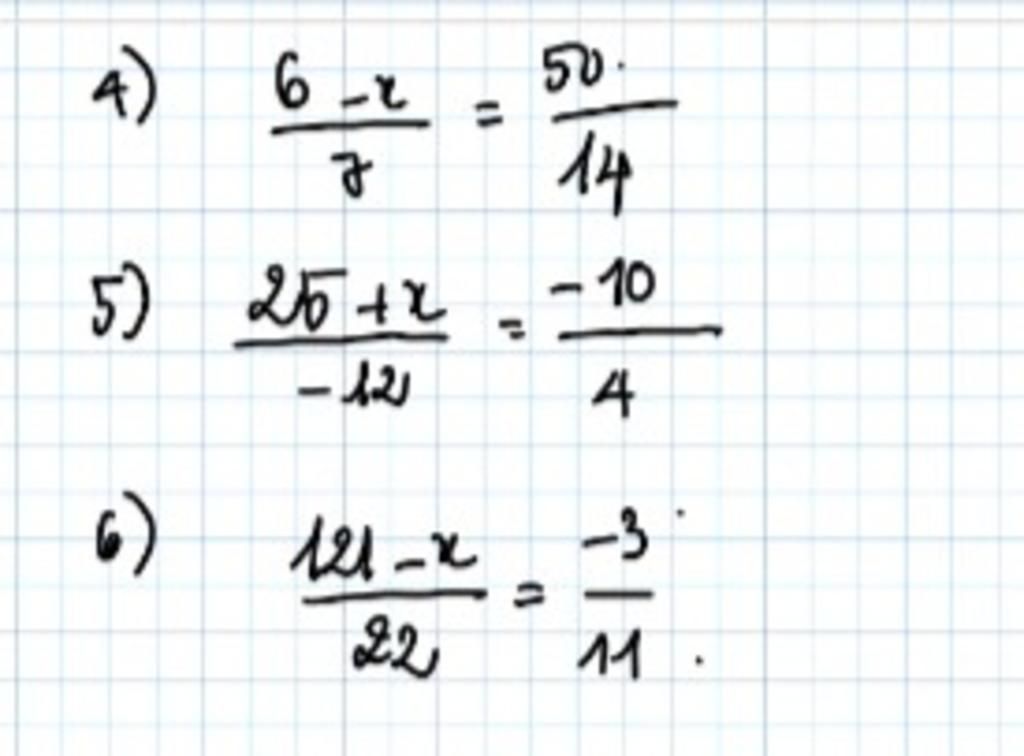 4) (6 - x)/7 = 50/14
5) (25 + x)/(-12) = -10/4
6) (121 - x)/22 = -3/11